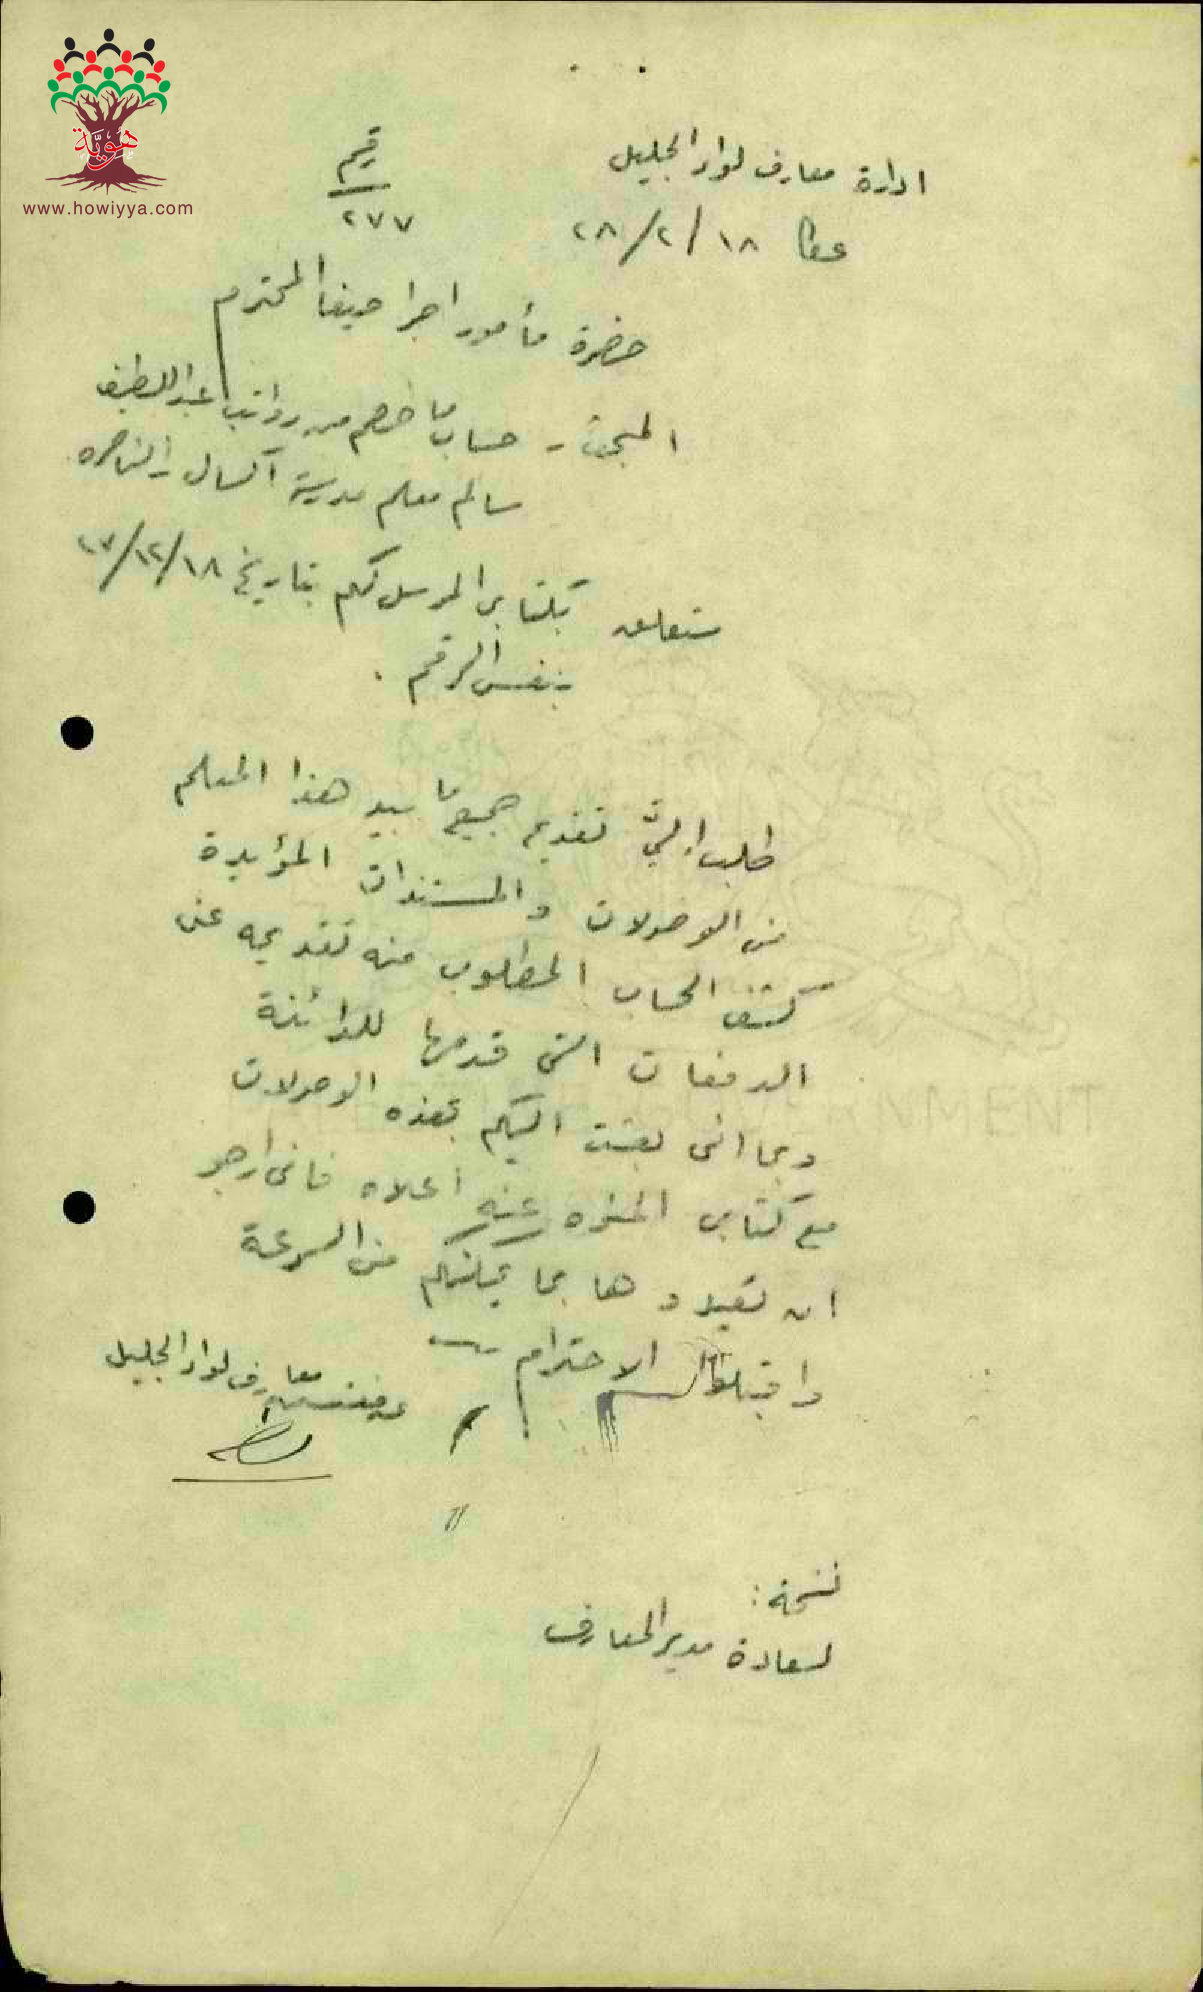 هوية
www.howiyya.com
ادارة معارف لواء الجليل
عكا ١٨/٢/٢٨
رقم
٢٧٧
حضرة مأمور اجرا حيفا المحترم
المبحث - حساب ما خصم من رواتب عبد اللطيف
سالم معلم مدرسة اكسال - الناصره
ستعلق بكتابي المرسل لكم بتاريخ ١٨/١٢/٢٧
بنفس الرقم .
طلب الي تقديم جميع ما بيد هذا المعلم
من الوصولات والمستندات المؤيدة
كشف الحساب المطلوب منه تقديمه عن
الدفعات التي قدمها للدائنة
وبما اني بعثت اليكم بهذه الوصولات
مع كتابي المنوه عنه اعلاه فاني ارجو
ان تعيدوها بما يمكنكم من السرعة
واقبلوا الاحترام
مفتش معارف لواء الجليل
نسخة :
لسعادة مدير المعارف
GOVERNMENT